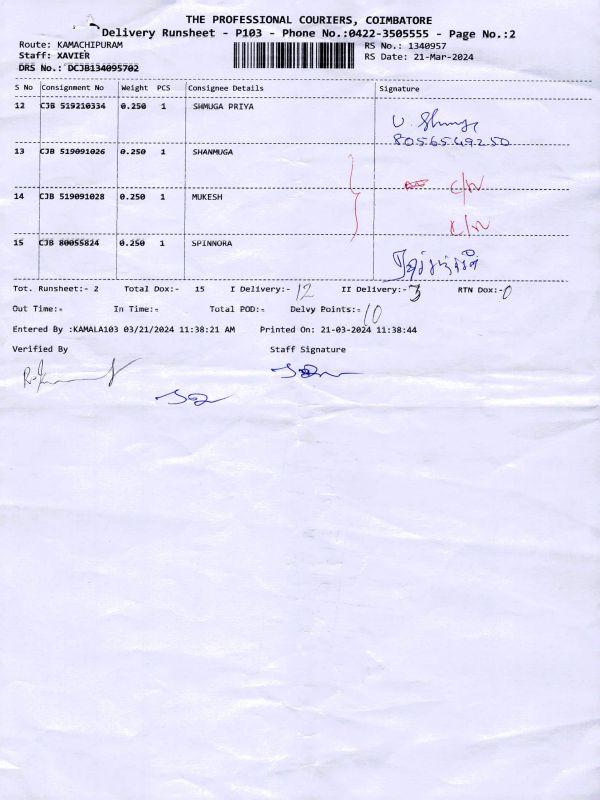 THE PROFESSIONAL COURIERS, COIMBATORE
Delivery Runsheet - P103 - Phone No.:0422-3505555 - Page No.:2
Route: KAMACHIPURAM
RS No.: 1340957
Staff: XAVIER
RS Date: 21-Mar-2024
DRS No.: DCJB134095702
S No Consignment No Weight PCS Consignee Details Signature
12 CJB 519210334 0.250 1 SHMUGA PRIYA
8056549250
13 CJB 519091026 0.250 1 SHANMUGA
14 CJB 519091028 0.250 1 MUKESH
15 CJB 80055824 0.250 1 SPINNORA
Tot. Runsheet:- 2 Total Dox:- 15 I Delivery:- 12 II Delivery:- 3 RTN Dox:- 0
Out Time:- In Time:- Total POD:- Delvy Points:- 10
Entered By :KAMALA103 03/21/2024 11:38:21 AM Printed On: 21-03-2024 11:38:44
Verified By Staff Signature